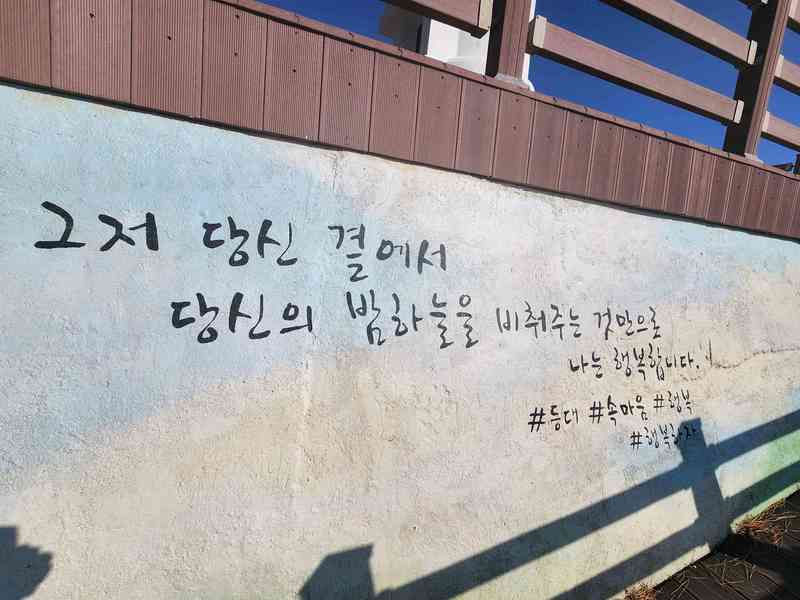 그저 당신 곁에서
당신의 밤하늘을 비춰주는 것만으로
나는 행복합니다.
#등대 #속마음 #행복
#행복하자